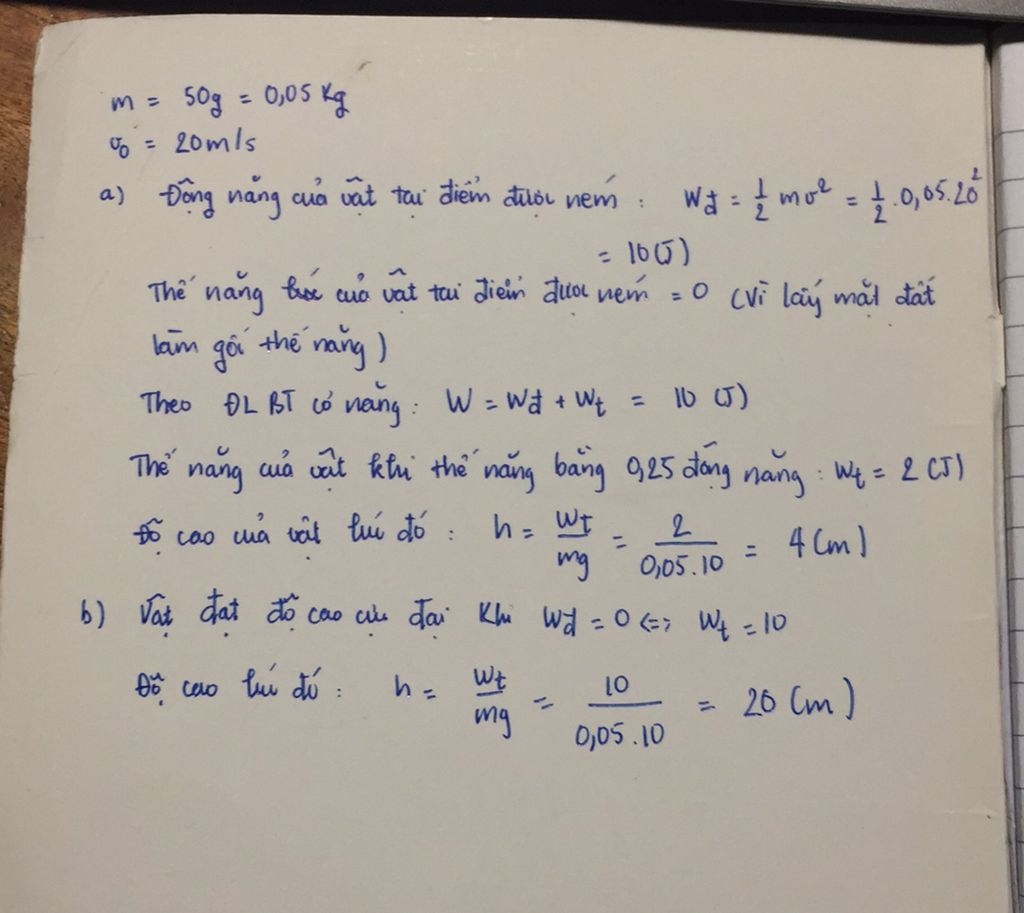 m = 50g = 0,05 Kg
v₀ = 20m/s
a) Động năng của vật tại điểm được ném : Wđ = 1/2 mv² = 1/2 . 0,05.20²
= 10(J)
Thế năng của vật tại điểm được ném = 0 (vì lấy mặt đất
làm gối thế năng)
Theo ĐL BT cơ năng : W = Wđ + Wt = 10 (J)
Thế năng của vật khi thế năng bằng 0,25 động năng : Wt = 2 (J)
Độ cao của vật lúc đó : h = Wt/mg = 2/0,05.10 = 4(m)
b) Vật đạt độ cao cực đại khi Wđ = 0 <=> Wt = 10
Độ cao lúc đó : h = Wt/mg = 10/0,05.10 = 20 (m)